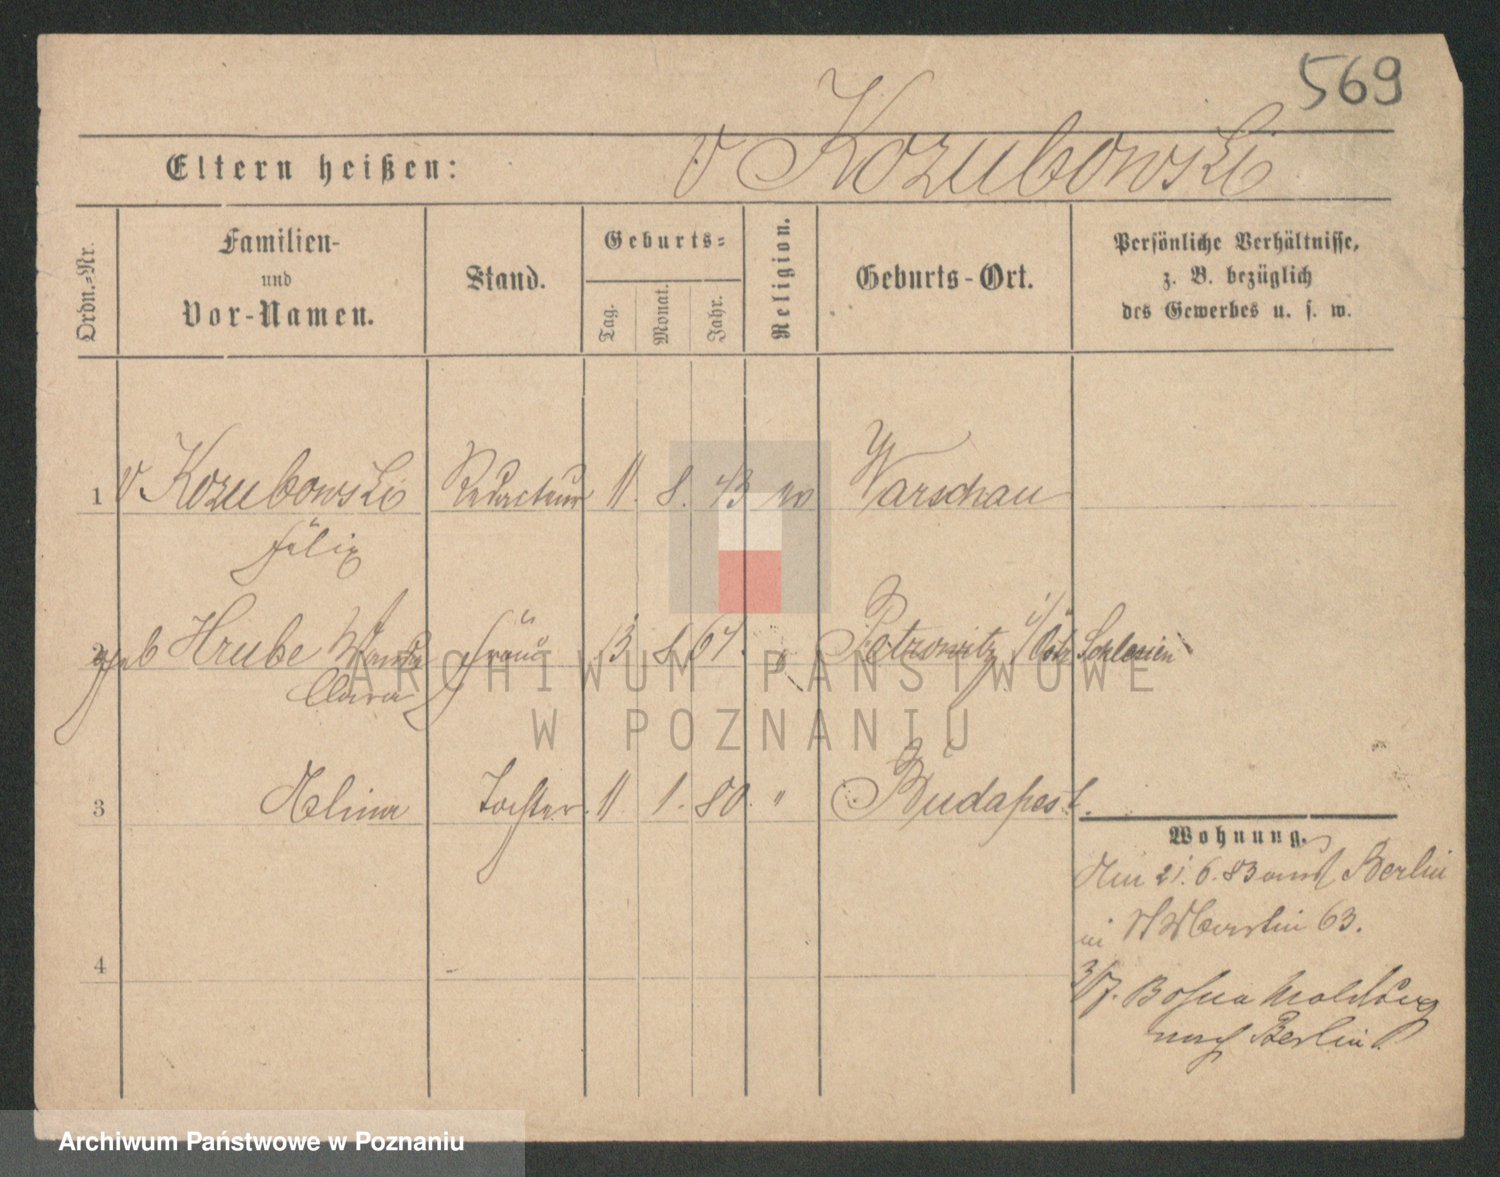 569
Eltern heißen: v Kozubowski
Ordn.-Nr.
Familien-
und
Vor-Namen.
Stand.
Geburts-
Tag.
Monat.
Jahr.
Religion.
Geburts-Ort.
Persönliche Verhältnisse,
z. B. bezüglich
des Gewerbes u. s. w.
1 v Kozubowski Redacteur 11. 8. 43 Warschau
Felix
2 geb Hrube Wanda Frau 13 8 67. " Petrowitz i/ Östr Schlesien
Clara
3 Helina Tochter 11 1. 80. " Budapest.
Wohnung.
21. 6. 83 Berlin
in St Martin 63.
4
3/7. Bosna
nach Berlin
ARCHIWUM PAŃSTWOWE
W POZNANIU
Archiwum Państwowe w Poznaniu